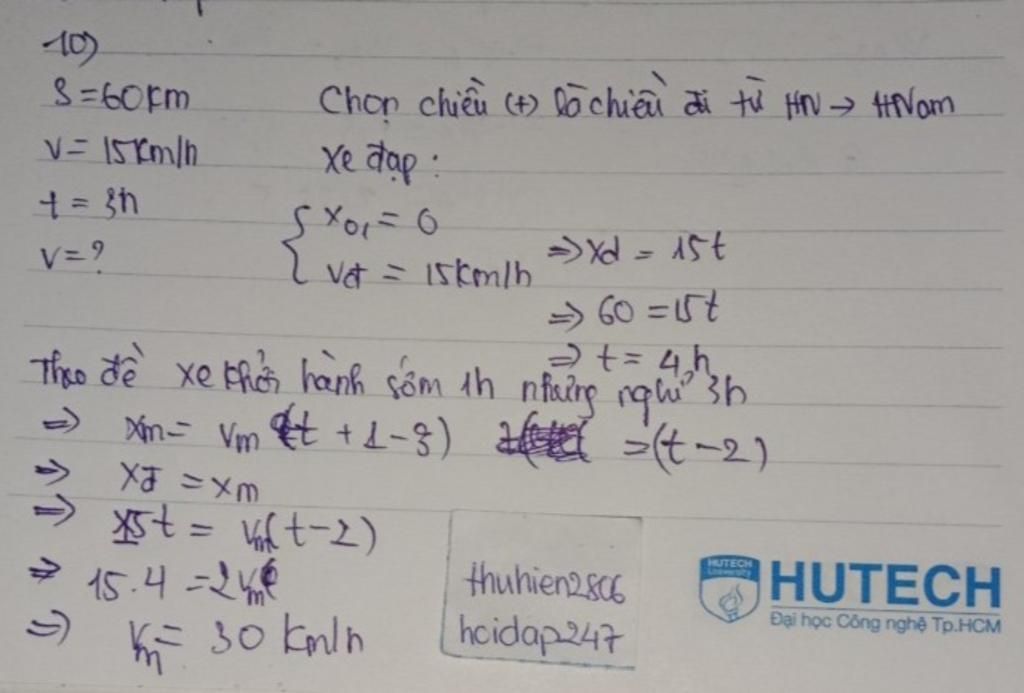 10)
S = 60km
Chọn chiều (+) là chiều đi từ HN → HNam
v = 15km/h
xe đạp:
t = 3h
{ x01 = 0
v = ?
vđ = 15km/h
=> xđ = 15t
=> 60 = 15t
=> t = 4h
Theo đề xe khởi hành sớm 1h nhưng nghỉ 3h
=> xm = vm (t + 1 - 3) = (t - 2)
=> xđ = xm
=> 15t = vm(t - 2)
=> 15.4 = 2vm
=> vm = 30 km/h
thuhien2806
hoidap247
HUTECH
University
HUTECH
Đại học Công nghệ Tp.HCM